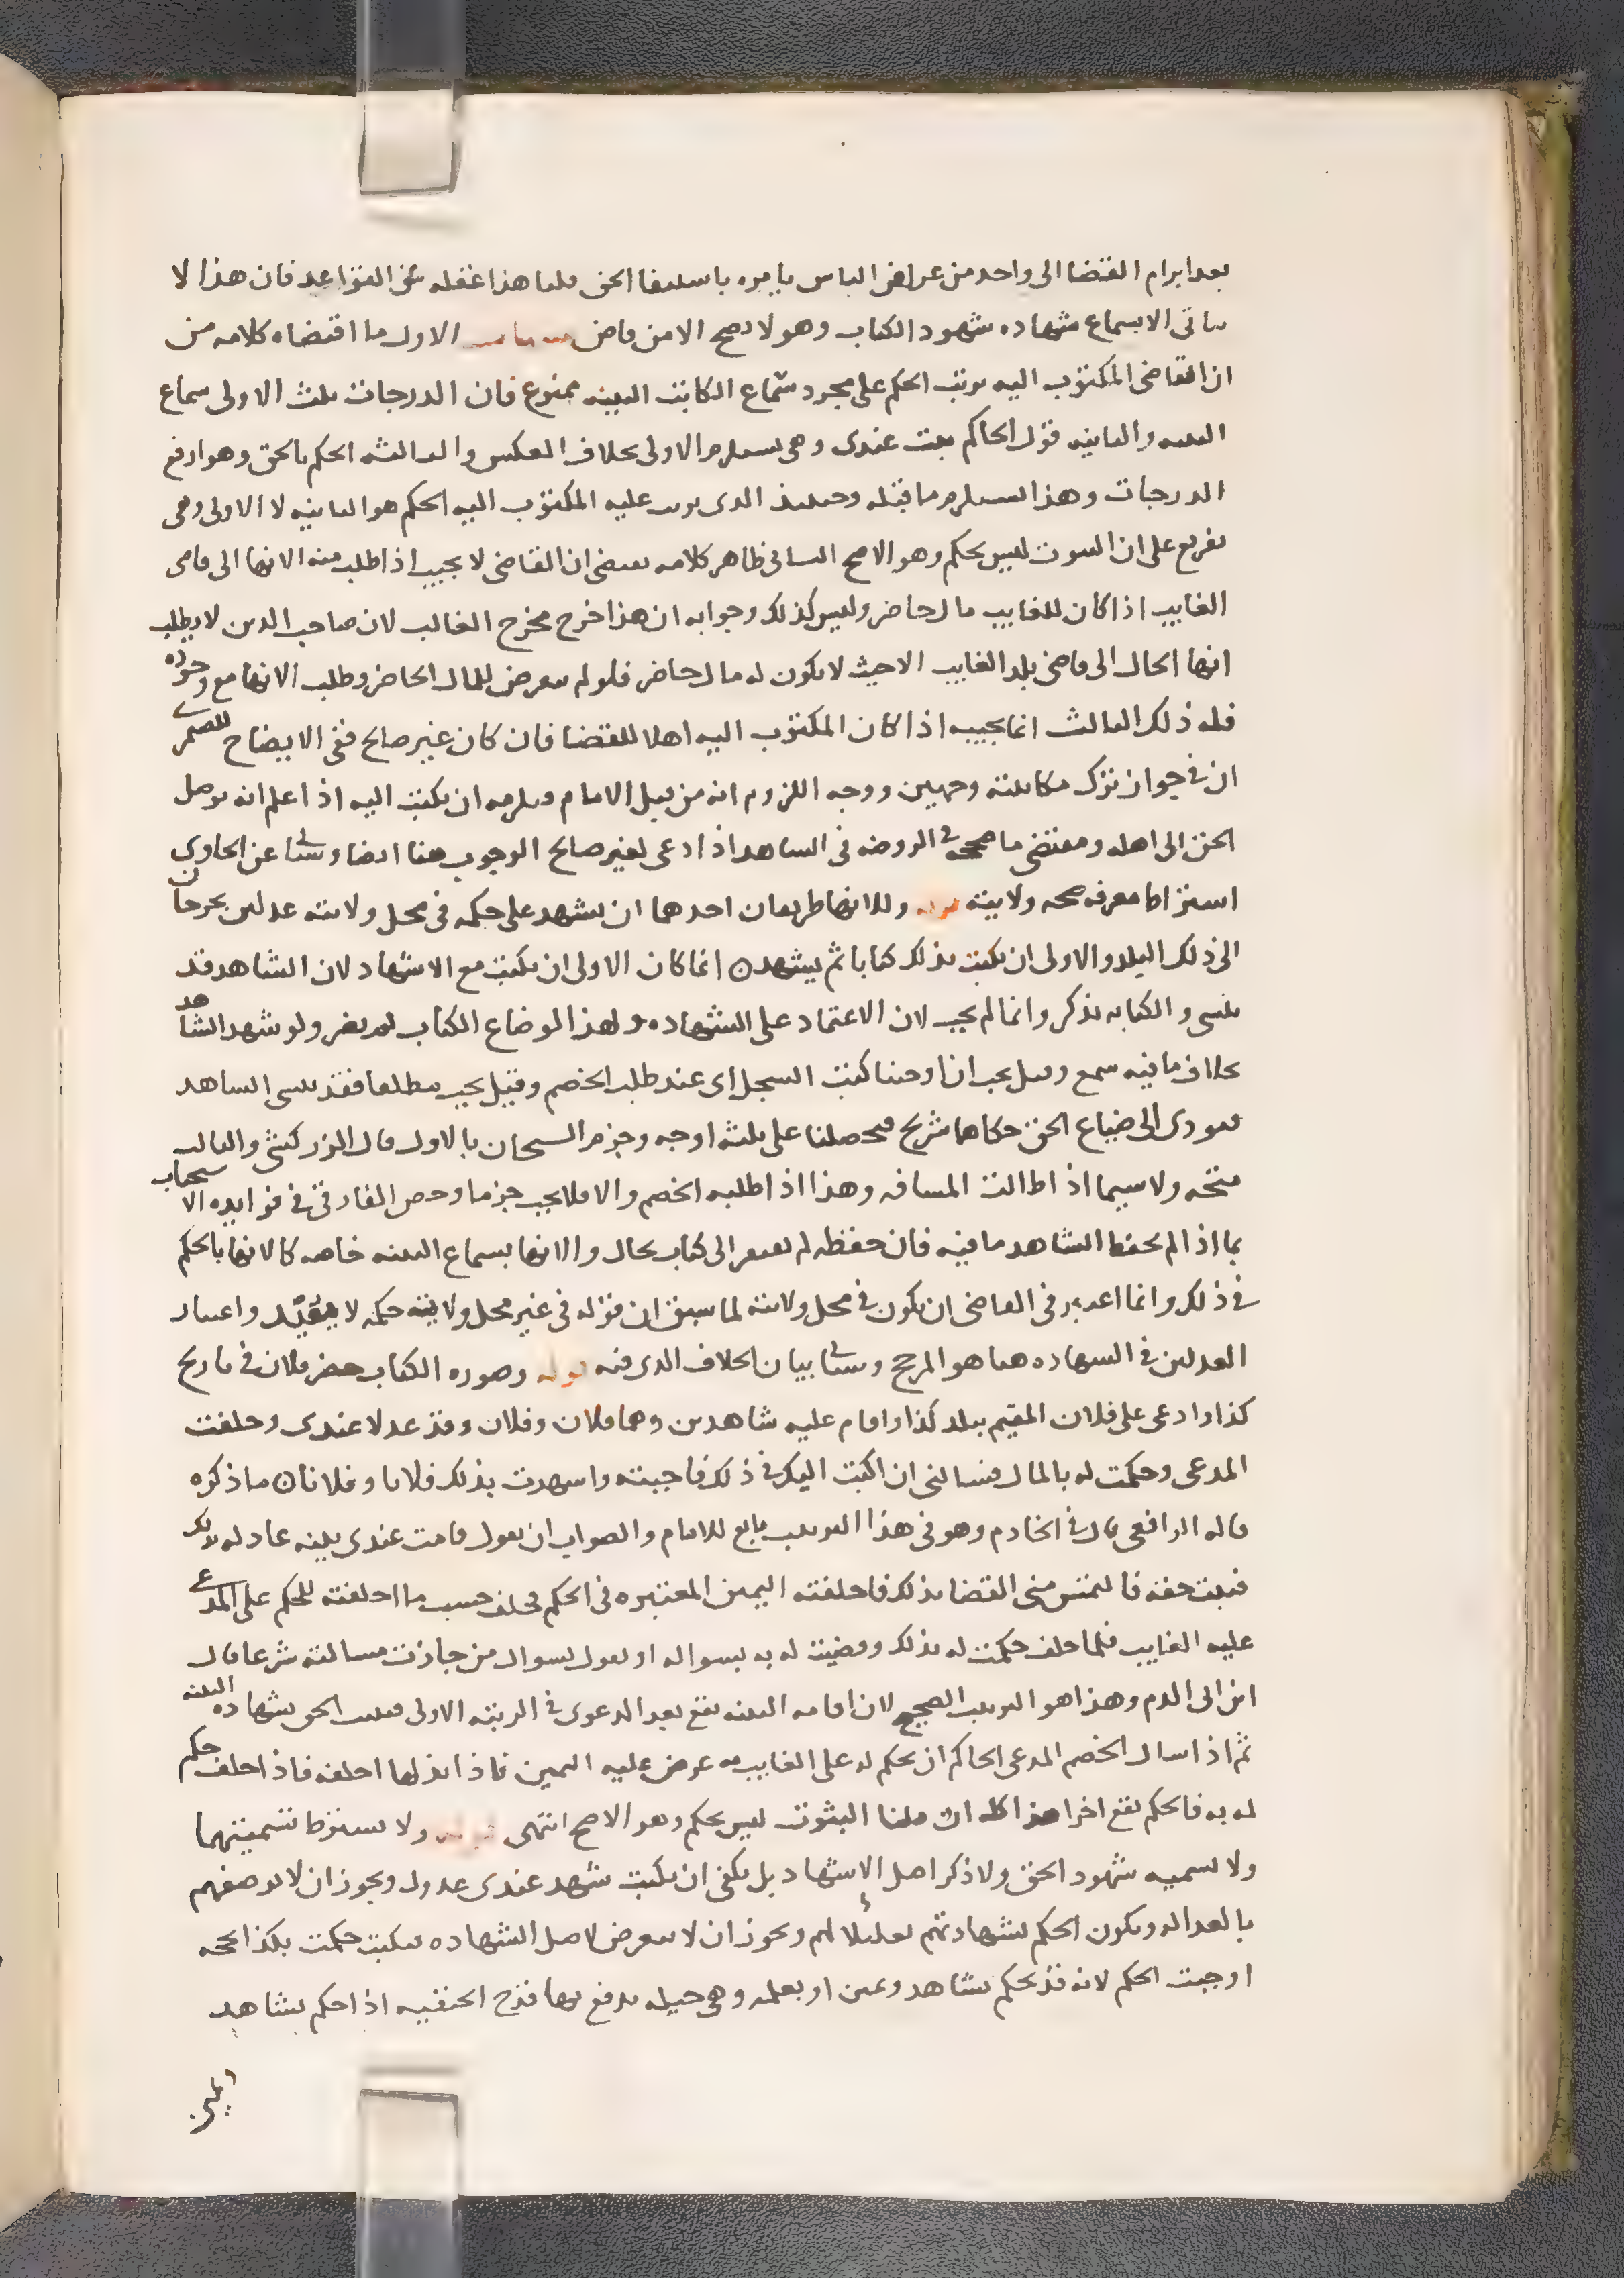 بعد ابرام القضا الى واحد من عراض الناس يامره باستيفا الحق قلنا هذا غفله عن القواعد فان هذا لا
ياتى الا بسماع شهاده شهود الكتاب وهو لا يصح الا من قاض الاول ما اقتضاه كلامه من
ان القاضى المكتوب اليه يرتب الحكم على مجرد سماع الكاتب البينه ممنوع فان الدرجات ثلث الاولى سماع
البينه والثانيه قول الحاكم ثبت عندى وهى يستلزم الاولى بخلاف العكس والثالثه الحكم بالحق وهو ارفع
الدرجات وهذا يستلزم ما قبله وحينئذ الذى يرتب عليه المكتوب اليه الحكم هو الثانيه لا الاولى وهى
تفريع على ان الثبوت ليس بحكم وهو الاصح الثانى ظاهر كلامه يقتضى ان القاضى لا يجيب اذا طلب منه الانها الى قاضى
الغايب اذا كان للغايب مال حاضر وليس كذلك وجوابه ان هذا خرج مخرج الغالب لان صاحب الدين لا يطلب
انها الحال الى قاضى بلد الغايب الا حيث لا يكون له مال حاضر فلو لم يتعرض للمال الحاضر وطلب الانها مع وجوده
فله ذلك الثالث انما يجيبه اذا كان المكتوب اليه اهلا للقضا فان كان غير صالح ففى الايضاح للصيمرى
ان فى جواز ترك مكاتبته وجهين ووجه اللزوم انه من قبل الامام ويلزمه ان يكتب اليه اذا علم انه يوصل
الحق الى اهله ومقتضى ما صححه فى الروضه فى الشاهد اذا دعى لغير صالح الوجوب هنا ايضا وسياتى عن الحاوى
اشتراط معرفه صحه ولايته قوله وللانها طريقان احدهما ان يشهد على حكمه فى محل ولايته عدلين يخرجان
الى ذلك البلد والاولى ان يكتب بذلك كتابا ثم يشهد انما كان الاولى ان يكتب مع الاشهاد لان الشاهد قد
ينسى والكتابه تذكر وانما لم يجب لان الاعتماد على الشهاده ولهذا لو ضاع الكتاب لم يضر ولو شهد الشاهد
بخلاف ما فيه سمع وقيل يجب ان اوجبنا كتب السجل اى عند طلب الخصم وقيل يجب مطلقا فقد ينسى الشاهد
فيودى الى ضياع الحق حكاهما شريح فحصلنا على ثلثه اوجه وجزم الشيخان بالاول قال الزركشى والثالث
متجه ولا سيما اذا طالت المسافه وهذا اذا طلبه الخصم والا فلا يجب جزما وخص الفارقى فى فوايده الاستحباب
بما اذا لم يحفظ الشاهد ما فيه فان حفظه لم يفتقر الى كتاب بحال والانها بسماع البينه خاصه كالانها بالحكم
فى ذلك وانما اعتبر فى القاضى ان يكون فى محل ولايته لما سبق ان قوله فى غير محل ولايته حكمه لا واعتبار
العدلين فى الشهاده هنا هو المرجح وسياتى بيان الخلاف الذى فيه قوله وصوره الكتاب حضر فلان فى تاريخ
كذا وادعى على فلان المقيم ببلد كذا واقام عليه شاهدين وهما فلان وفلان وقد عدلا عندى وحلفت
المدعى وحكمت له بالمال فسالنى ان اكتب اليك فى ذلك فاجبته واشهدت بذلك فلانا وفلانا ما ذكره
قاله الرافعى قال فى الخادم وهو فى هذا الترتيب تابع للامام والصواب ان يقول قامت عندى بينه عادله بذلك
فثبت حقه فالتمس منى القضا بذلك فاحلفته اليمين المعتبره فى الحكم فحلف حسب ما احلفته للحكم على المدعى
عليه الغايب فلما حلف حكمت له بذلك وقضيت له به بسواله او يقول بسوال من جازت مسالته شرعا قال
ابن ابى الدم وهذا هو الترتيب الصحيح لان اقامه البينه تقع بعد الدعوى فى الرتبه الاولى فيثبت الحق بشهاده البينه
ثم اذا سال الخصم المدعى الحاكم ان يحكم له على الغايب به عرض عليه اليمين فاذا بذلها احلفه فاذا حلف حكم
له به فالحكم يقع اخرا هذا كله ان قلنا الثبوت ليس بحكم وهو الاصح انتهى قوله ولا يشترط تسميتهما
ولا تسميه شهود الحق ولا ذكر اصل الاشهاد بل يكفى ان يكتب شهد عندى عدول ويجوز ان لا يصفهم
بالعداله ويكون الحكم بشهادتهم تعديلا لهم ويجوز ان لا يتعرض لاصل الشهاده فيكتب حكمت بكذا بحجه
اوجبت الحكم لانه قد يحكم بشاهد ويمين او بعلمه وهى حيله يدفع بها قدح الحنفيه اذا حكم بشاهد
ويمين